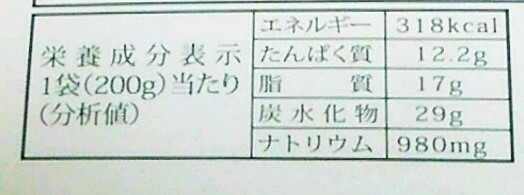 栄養成分表示
1袋(200g)当たり
(分析値)
エネルギー 318kcal
たんぱく質 12.2g
脂質 17g
炭水化物 29g
ナトリウム 980mg